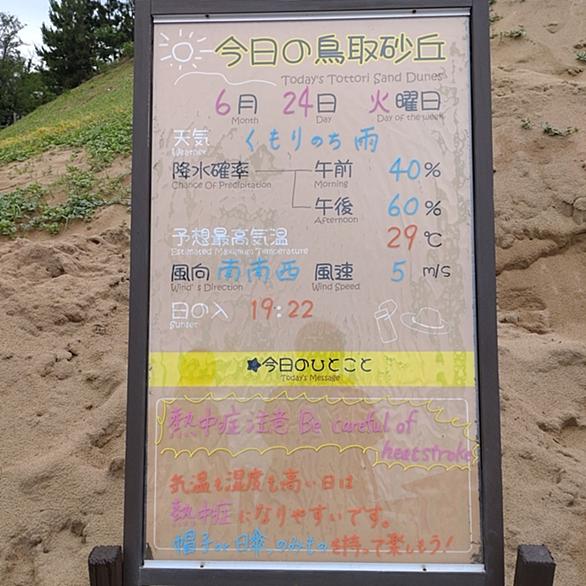 今日の鳥取砂丘
Today's Tottori Sand Dunes
6月 24日 火曜日
Month Day Day of the week
天気 くもりのち雨
Weather
降水確率 午前 40%
Chance Of Precipitation Morning
午後 60%
Afternoon
予想最高気温 29℃
Estimated Maximum Temperature
風向 南南西 風速 5 m/s
Wind's Direction Wind Speed
日の入 19:22
Sunset
★今日のひとこと
Today's Message
熱中症注意 Be careful of
heatstroke
気温も湿度も高い日は
熱中症になりやすいです。
帽子or日傘、のみものを持って楽しもう!